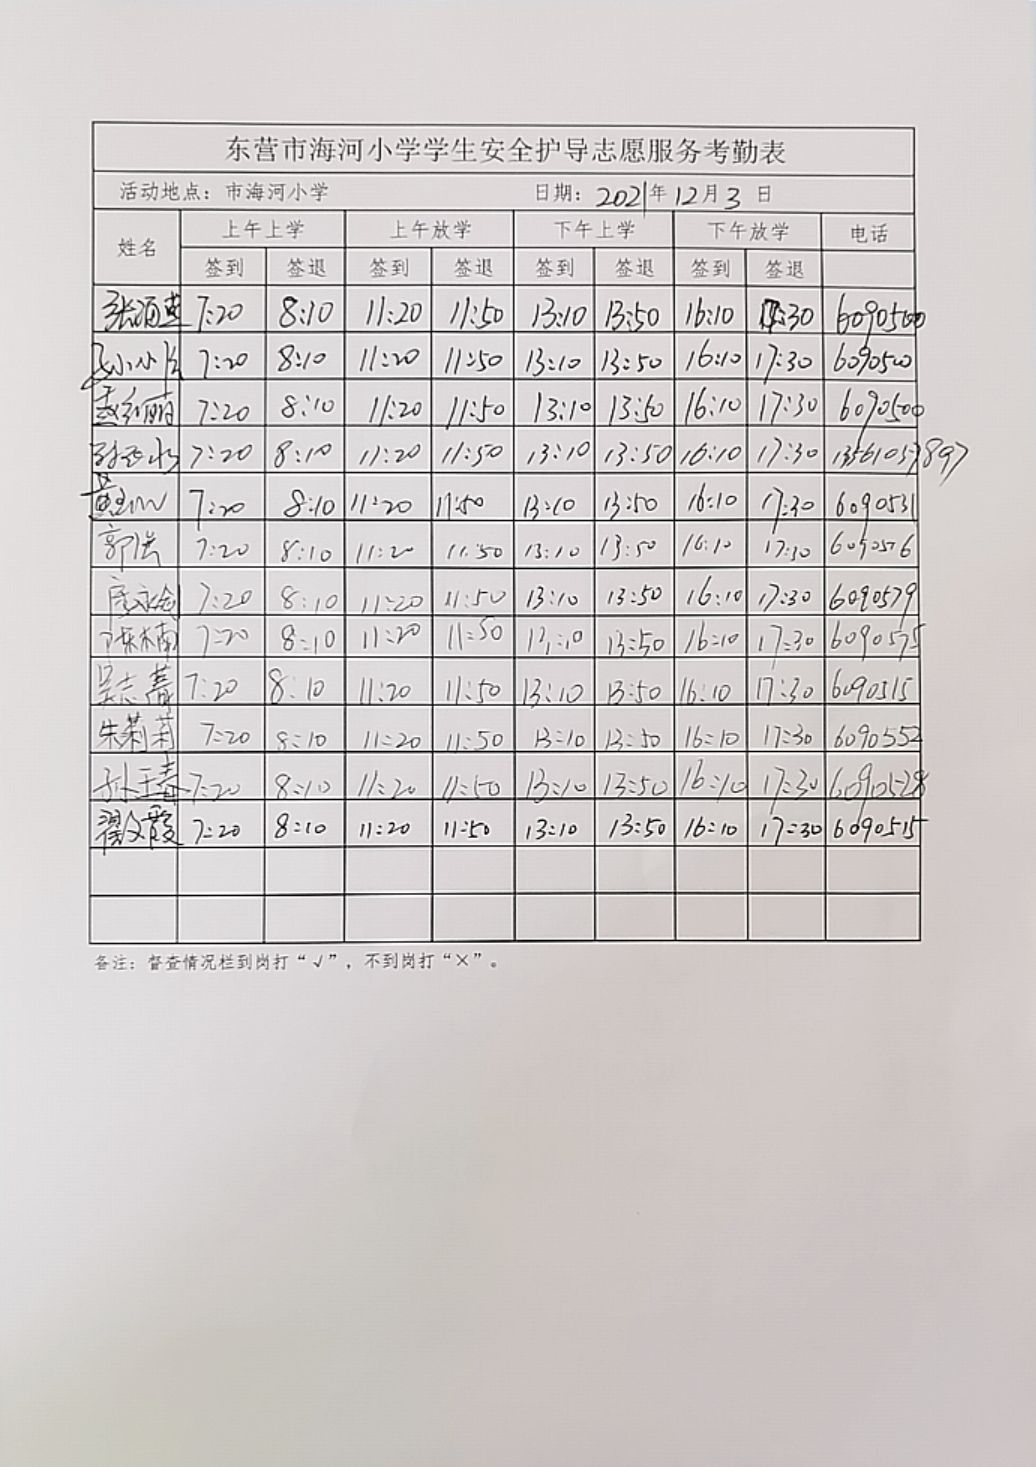 东营市海河小学学生安全护导志愿服务考勤表
活动地点：市海河小学 日期：2021年12月3日
姓名 上午上学 上午放学 下午上学 下午放学 电话
签到 签退 签到 签退 签到 签退 签到 签退
7:20 8:10 11:20 11:50 13:10 13:50 16:10 17:30 6090500
7:20 8:10 11:20 11:50 13:10 13:50 16:10 17:30 6090500
7:20 8:10 11:20 11:50 13:10 13:50 16:10 17:30 6090500
7:20 8:10 11:20 11:50 13:10 13:50 16:10 17:30
7:20 8:10 11:20 11:50 13:10 13:50 16:10 17:30 6090531
郭洪 7:20 8:10 11:20 11:50 13:10 13:50 16:10 17:30
7:20 8:10 11:20 11:50 13:10 13:50 16:10 17:30 6090579
陈楠 7:20 8:10 11:20 11:50 13:10 13:50 16:10 17:30 6090575
吴志菁 7:20 8:10 11:20 11:50 13:10 13:50 16:10 17:30 6090515
朱莉莉 7:20 8:10 11:20 11:50 13:10 13:50 16:10 17:30 6090552
孙玉春 7:20 8:10 11:20 11:50 13:10 13:50 16:10 17:30 6090528
翟文霞 7:20 8:10 11:20 11:50 13:10 13:50 16:10 17:30 6090515
备注：督查情况栏到岗打“√”，不到岗打“×”。